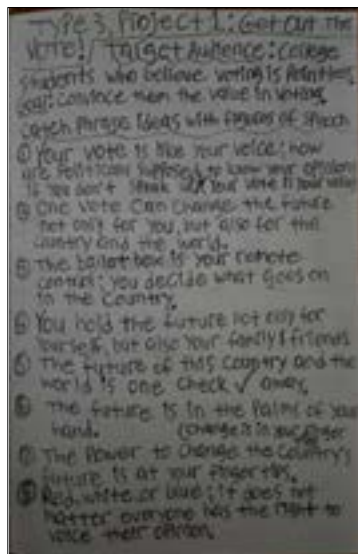 Type 3, Project 1: Get Out The
Vote! / Target Audience: College
Students who believe voting is Pointless
Goal: Convince them the value in voting.
Catch Phrase Ideas with figures of speech
① Your vote is like your voice; how
are Politicians supposed to know your opinions
if you don't speak up. Your vote is your voice
② One Vote Can Change the future
not only for you, but also for this
Country and the world.
③ The ballot box is your remote
control; you decide what goes on
in the Country.
④ You hold the future not only for
Yourself, but also your family & friends
⑤ The future of this Country and the
world is one Check ✓ away.
⑥ The future is in the Palms of your
hand. (Change is in your finger
⑦ The Power to Change the Country's
future is at Your fingertips.
⑧ Red, white or blue; it does not
matter everyone has the right to
voice their opinion.